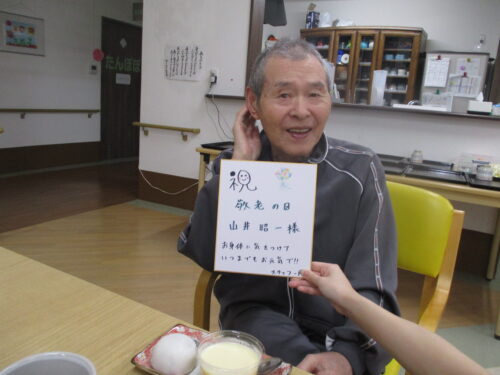 たんぽぽ
祝
敬老の日
山井 昭一 様
お身体に気をつけて
いつまでもお元気で!!
スタッフ一同